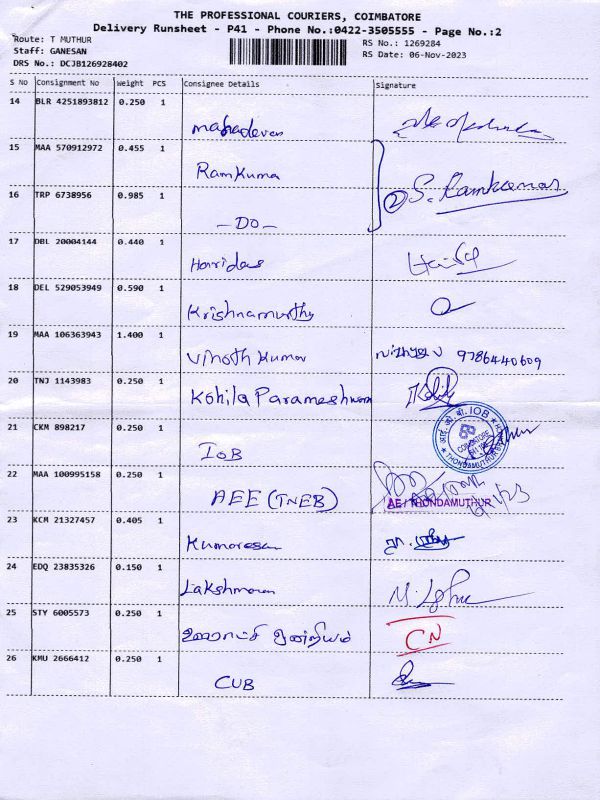 THE PROFESSIONAL COURIERS, COIMBATORE
Delivery Runsheet - P41 - Phone No.:0422-3505555 - Page No.:2
Route: T MUTHUR
Staff: GANESAN
DRS No.: DCJB126928402
RS No.: 1269284
RS Date: 06-Nov-2023
S No Consignment No Weight PCS Consignee Details Signature
14 BLR 4251893812 0.250 1
mahadevan
15 MAA 570912972 0.455 1
RamKumar
16 TRP 6738956 0.985 1
② S. Ramkumar
- DO -
17 DBL 20004144 0.440 1
Haridas
18 DEL 529053949 0.590 1
Krishnamurthy
19 MAA 106363943 1.400 1
Vinoth Kumar 9786440609
20 TNJ 1143983 0.250 1
Kohila Parameshwari
21 CKM 898217 0.250 1
IOB
आई. ओ. बी. IOB
COIMBATORE
THONDAMUTHUR
22 MAA 100995158 0.250 1
AEE (TNEB)
AE / THONDAMUTHUR
23 KCM 21327457 0.405 1
Kumaresan
24 EDQ 23835326 0.150 1
Lakshmanan
25 STY 6005573 0.250 1
ஊராட்சி ஒன்றியம் CN
26 KMU 2666412 0.250 1
CUB